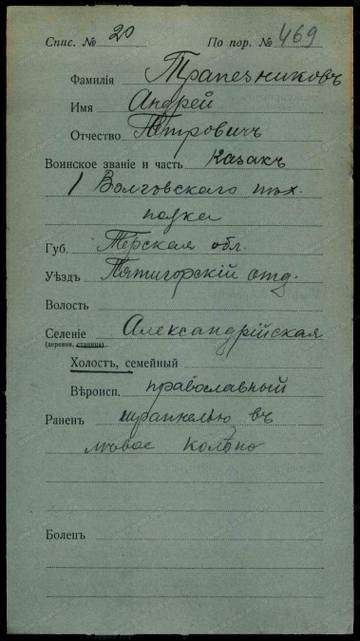 Спис. № 20 По пор. № 469
Фамилія Трапезниковъ
Имя Андрей
Отчество Петровичъ
Воинское званіе и часть Казакъ
1 Волговскаго
полка
Губ. Терская обл.
Уѣздъ Пятигорскій отд.
Волость
Селеніе Александрійская
(деревня, станица)
Холостъ, семейный
Вѣроисп. православный
Раненъ шрапнелью въ
лѣвое колѣно
Боленъ